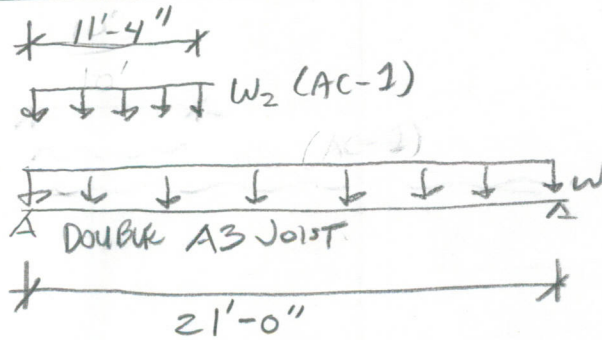 11'-4"
W₂ (AC-1)
W
DOUBLE A3 JOIST
21'-0"